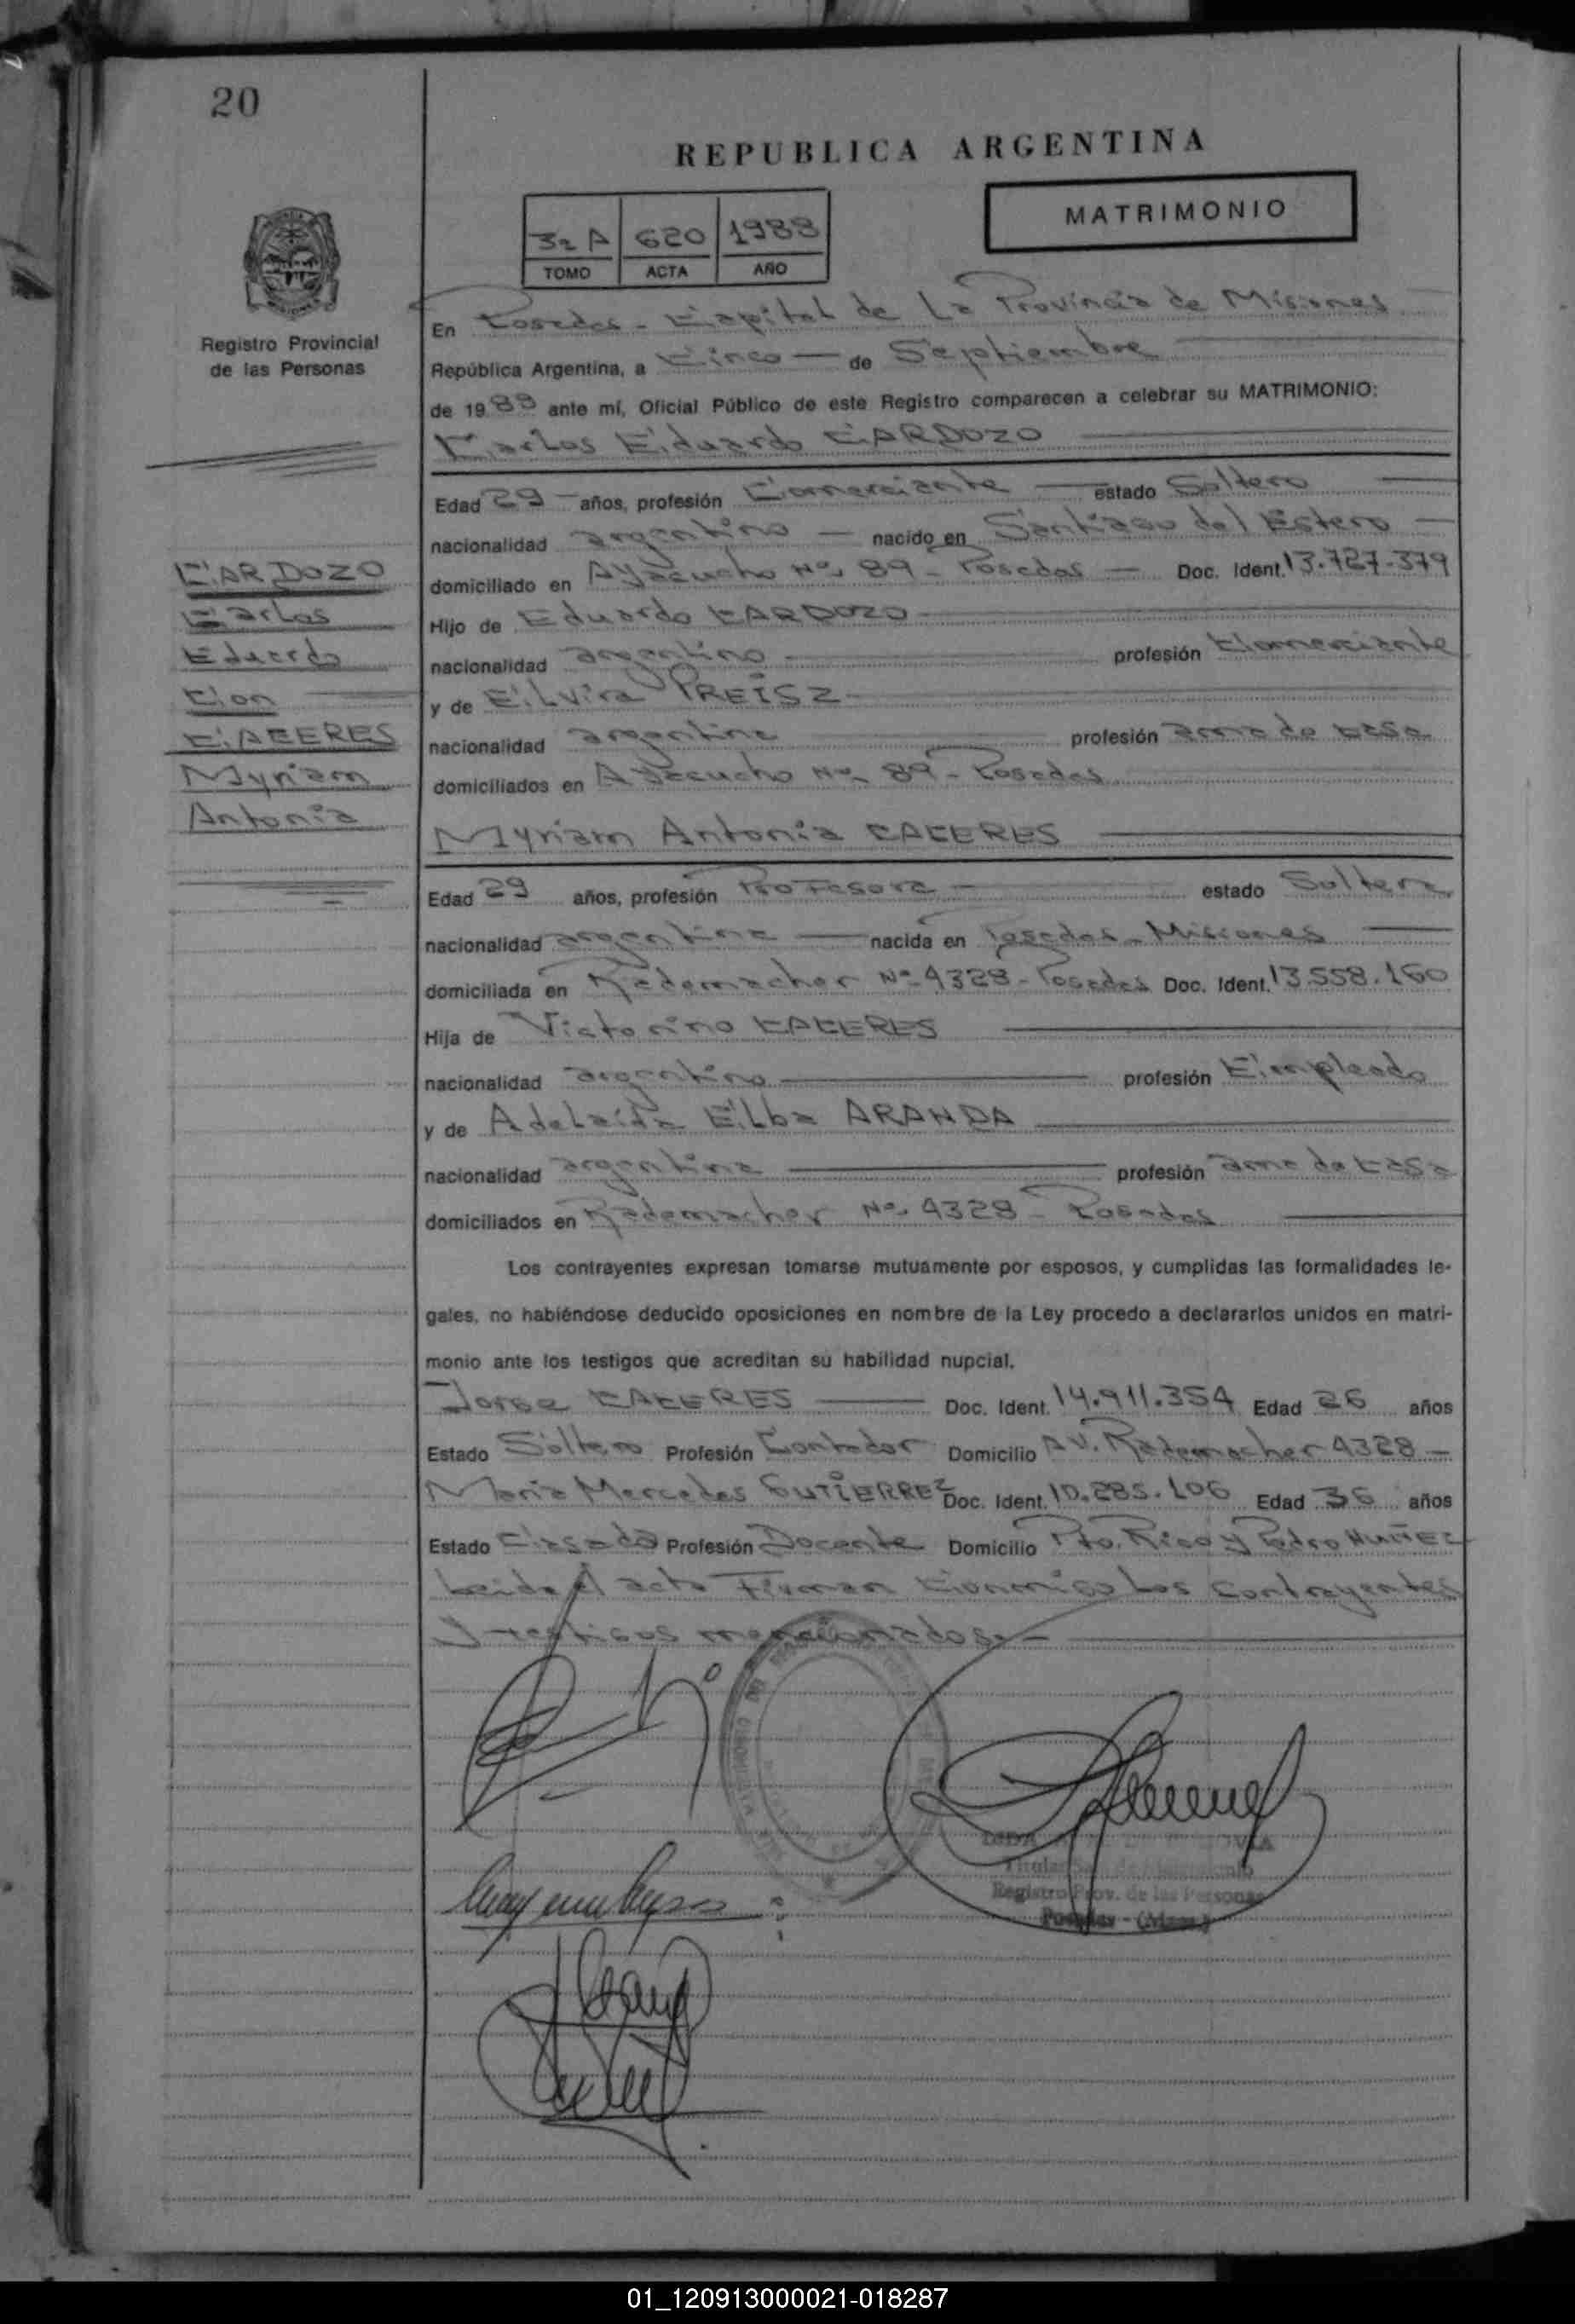 20
REPUBLICA ARGENTINA
MATRIMONIO
3º A 620 1989
TOMO ACTA AÑO
Registro Provincial
de las Personas
En Posadas - Capital de La Provincia de Misiones
República Argentina, a Cinco — de Septiembre
de 1989 ante mí, Oficial Público de este Registro comparecen a celebrar su MATRIMONIO:
Carlos Eduardo CARDOZO
Edad 29 años, profesión Comerciante estado Soltero
nacionalidad argentino — nacido en Santiago del Estero —
domiciliado en Ayacucho Nº 89 - Posadas — Doc. Ident. 13.727.379
Hijo de Eduardo CARDOZO
nacionalidad argentino profesión Comerciante
y de Elvira PREISZ
nacionalidad argentina profesión ama de casa
domiciliados en Ayacucho Nº 89 - Posadas
Myriam Antonia CACERES
Edad 29 años, profesión Profesora — estado Soltera
nacionalidad argentina — nacida en Posadas - Misiones
domiciliada en Rademacher Nº 4328 - Posadas Doc. Ident. 13.558.160
Hija de Victorino CACERES
nacionalidad argentino profesión Empleado
y de Adelaida Elba ARANDA
nacionalidad argentina profesión ama de casa
domiciliados en Rademacher Nº 4328 - Posadas
Los contrayentes expresan tomarse mutuamente por esposos, y cumplidas las formalidades le-
gales, no habiéndose deducido oposiciones en nombre de la Ley procedo a declararlos unidos en matri-
monio ante los testigos que acreditan su habilidad nupcial.
Jorge CACERES Doc. Ident. 14.911.354 Edad 26 años
Estado Soltero Profesión Contador Domicilio Av. Rademacher 4328 —
Maria Mercedes GUTIERREZ Doc. Ident. 10.285.106 Edad 36 años
Estado Casada Profesión Docente Domicilio Pto. Rico y Pedro NUÑEZ
Leida el acta Firman Conmigo Los Contrayentes
y testigos mencionados. —
CARDOZO
Carlos
Eduardo
Con
CACERES
Myriam
Antonia
Titular
Registro Prov. de las Personas
Posadas - (Mnes.)
01_120913000021-018287